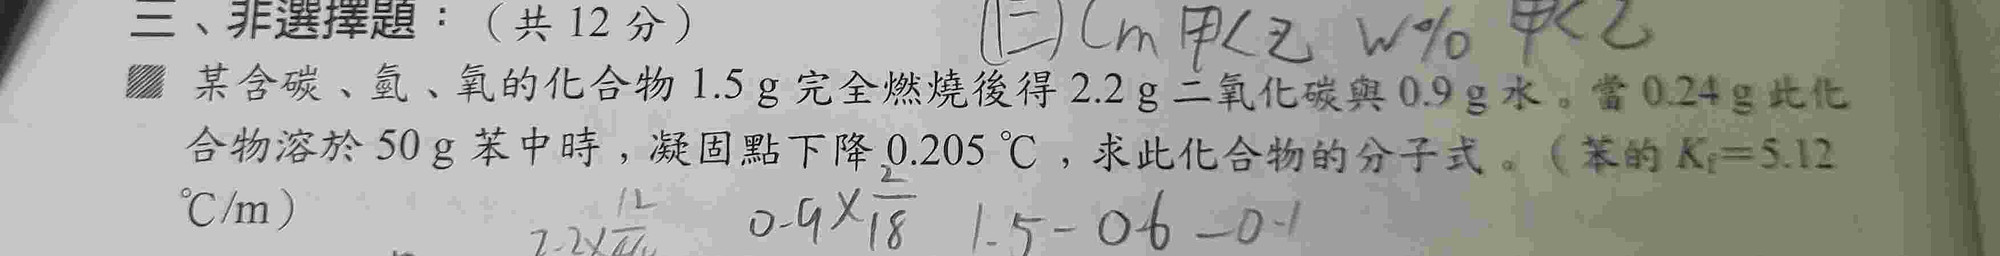 三、非選擇題：（共 12 分）
(二) Cm 甲<乙 W% 甲<乙
某含碳、氫、氧的化合物 1.5 g 完全燃燒後得 2.2 g 二氧化碳與 0.9 g 水。當 0.24 g 此化
合物溶於 50 g 苯中時，凝固點下降 0.205 ℃，求此化合物的分子式。（苯的 Kf＝5.12
℃/m）
2.2×12/44 0.9×2/18 1.5-0.6-0.1